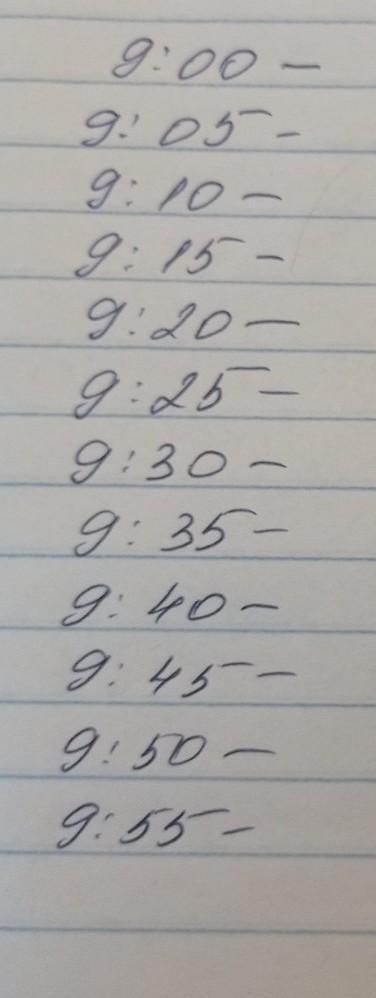 9:00 -
9:05 -
9:10 -
9:15 -
9:20 -
9:25 -
9:30 -
9:35 -
9:40 -
9:45 -
9:50 -
9:55 -